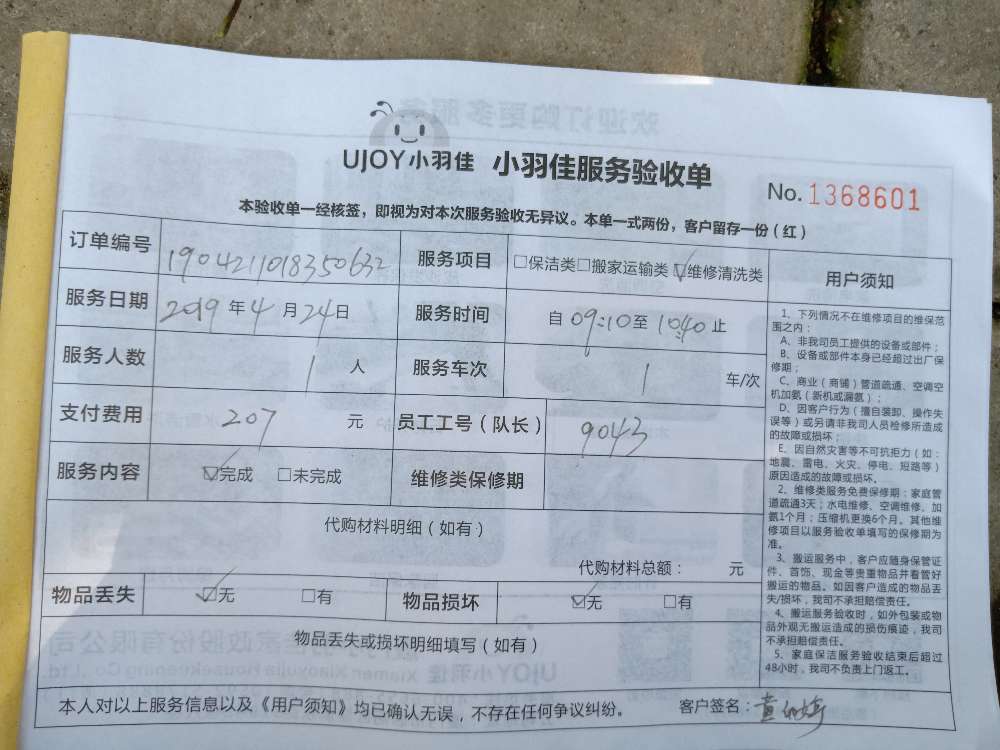 UJOY小羽佳 小羽佳服务验收单
No. 1368601
本验收单一经核签，即视为对本次服务验收无异议。本单一式两份，客户留存一份（红）
订单编号 1904211018350632 服务项目 □保洁类□搬家运输类☑维修清洗类
服务日期 2019年4月24日 服务时间 自09:10至10:40止
服务人数 1人 服务车次 1车/次
支付费用 207元 员工工号（队长） 9043
服务内容 ☑完成 □未完成 维修类保修期
代购材料明细（如有）
代购材料总额： 元
物品丢失 ☑无 □有 物品损坏 ☑无 □有
物品丢失或损坏明细填写（如有）
用户须知
1、下列情况不在维修项目的维保范
围之内：
A、非我司员工提供的设备或部件；
B、设备或部件本身已经超过出厂保
修期；
C、商业（商铺）管道疏通、空调空
机加氨（新机或漏氨）；
D、因客户行为（擅自装卸、操作失
误等）或另请非我司人员检修所造成
的故障或损坏；
E、因自然灾害等不可抗拒力（如：
地震、雷电、火灾、停电、短路等）
原因造成的故障或损坏。
2、维修类服务免费保修期：家庭管
道疏通3天；水电维修、空调维修、加
氨1个月；压缩机更换6个月。其他维
修项目以服务验收单填写的保修期为
准。
3、搬运服务中，客户应随身保管证
件、首饰、现金等贵重物品并看管好
搬运的物品。如因客户造成的物品丢
失/损坏，我司不承担赔偿责任。
4、搬运服务验收时，如外包装或物
品外观无搬运造成的损伤痕迹，我司
不承担赔偿责任。
5、家庭保洁服务验收结束后超过
48小时，我司不负责上门返工。
本人对以上服务信息以及《用户须知》均已确认无误，不存在任何争议纠纷。 客户签名：